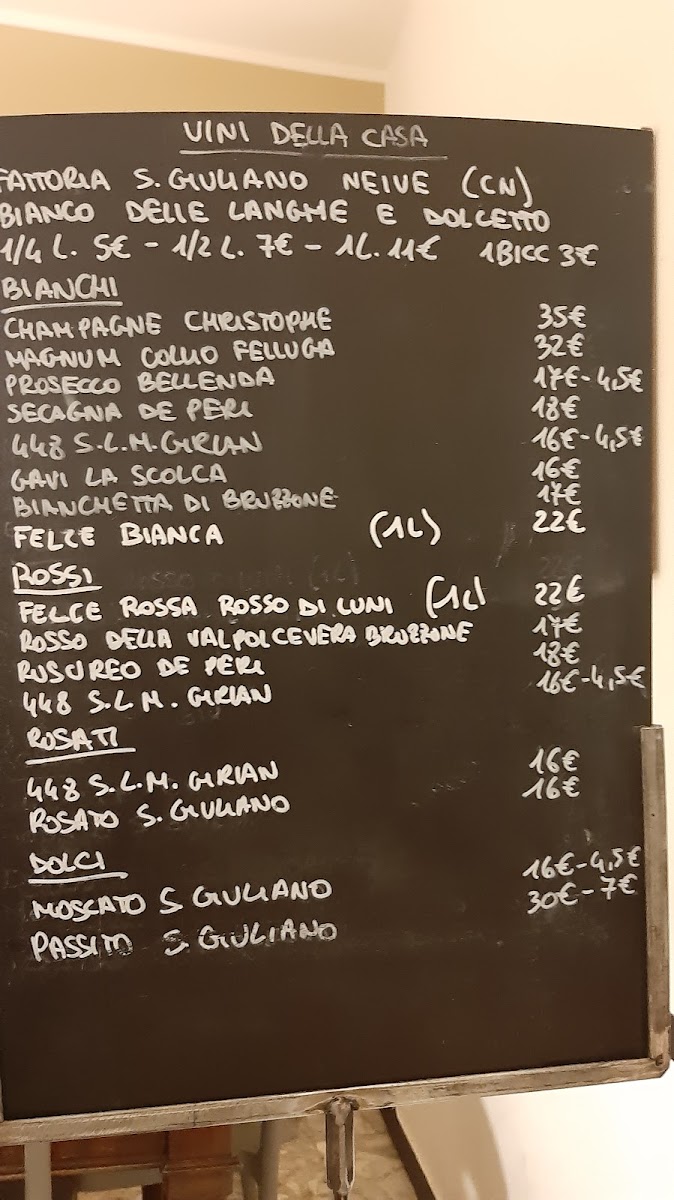 VINI DELLA CASA
FATTORIA S. GIULIANO NEIVE (CN)
BIANCO DELLE LANGHE E DOLCETTO
1/4 L. 5€ - 1/2 L. 7€ - 1L. 11€ 1BICC 3€
BIANCHI
CHAMPAGNE CHRISTOPHE 35€
MAGNUM COLLIO FELLUGA 32€
PROSECCO BELLENDA 17€-4,5€
SECAGNA DE PERI 18€
448 S.L.M. GIRLAN 16€-4,5€
GAVI LA SCOLCA 16€
BIANCHETTA DI BRUZZONE 17€
FELCE BIANCA (1L) 22€
ROSSI
FELCE ROSSA ROSSO DI LUNI (1L) 22€
ROSSO DELLA VALPOLCEVERA BRUZZONE 17€
RUSCREO DE PERI 18€
448 S.L.M. GIRLAN 16€-4,5€
ROSATI
448 S.L.M. GIRLAN 16€
ROSATO S. GIULIANO 16€
DOLCI
MOSCATO S GIULIANO 16€-4,5€
PASSITO S. GIULIANO 30€-7€